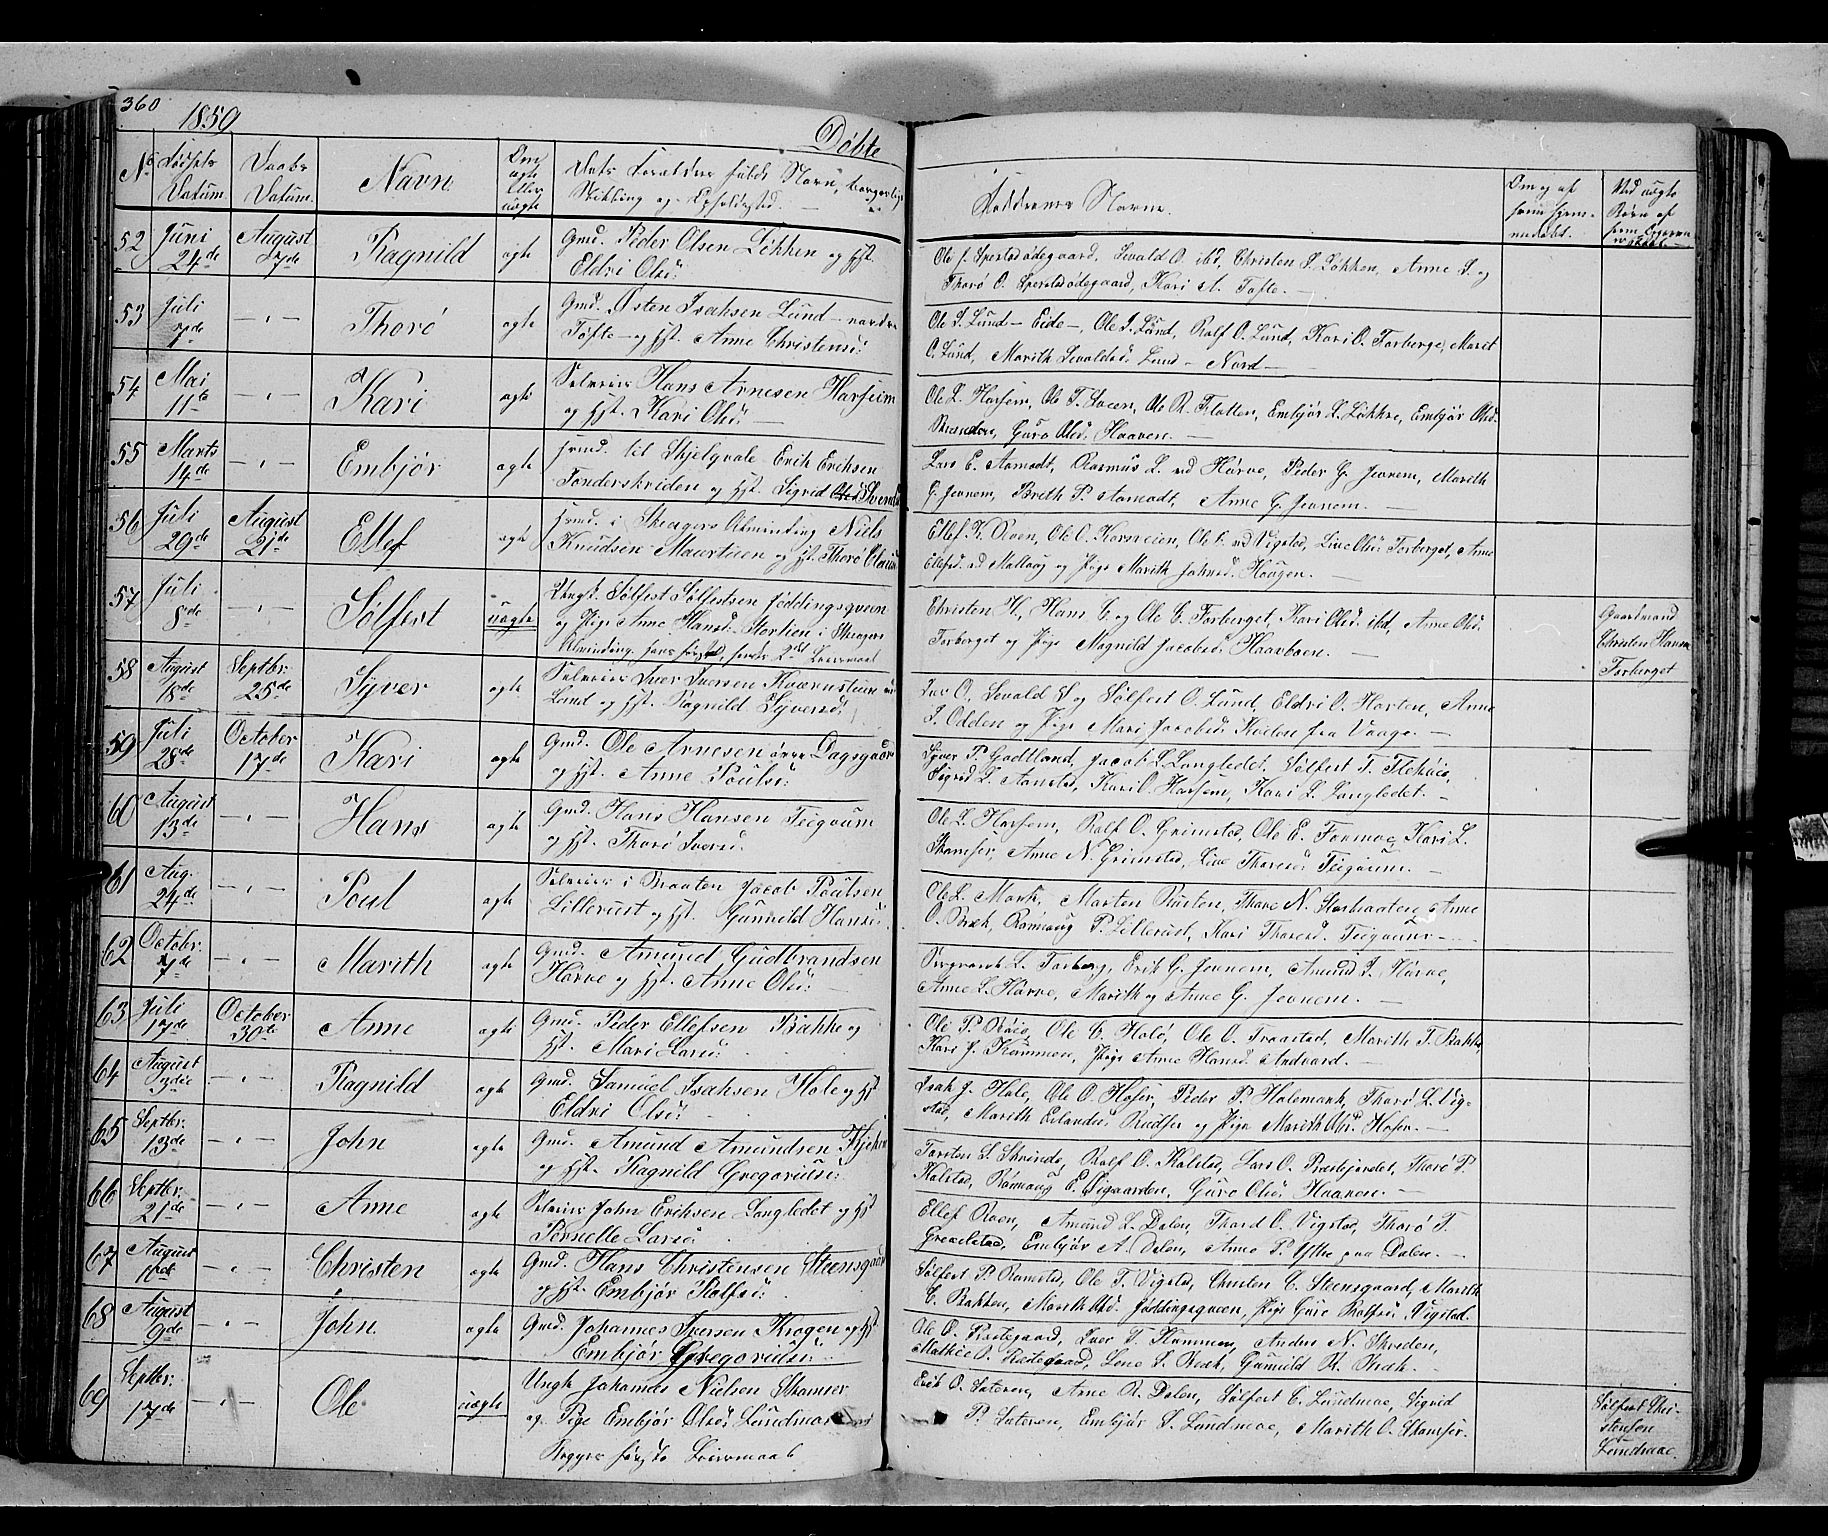 360
1859
Døbte
No
Fødsels
Datum.
Daabs
Datum.
Navn
Om
ægte
eller
uægte
Dets Forældres fulde Navn, borgerlige
Stilling og Opholdssted.
Faddernes Navne.
Om og af
hvem hjem-
medøbt.
Ved uægte
Børn af
hvem
52 Juni 24de August 7de Ragnild ægte Gmd. Peder Olsen Løkken og Hst.
Eldri Olsd:
Ole Sperstadødegaard, Sevald O. ibd, Christen Løkken, Anne og
Thorø O. Sperstadødegaard, Kari Tofte.
53 Juli 7de — " — Thorø ægte Gmd. Østen Isaksen Lund nordre
Tofte og Hst. Anne Christensd:
Ole I. Lund – Eide –, Ole I. Lund, Rolf O. Lund, Kari O. Forberge, Marit
O. Lund, Marith Sevaldsd: Lund – Nord –
54 Mai 11te Kari ægte Selveier Hans Arnesen Harseim
og Hst. Kari Olsd:
Ole L. Harsem, Ole T. Ole R. Flatten, Embjør L. Løkkre, Embjør Olsd.
Guro Olsd. Haaven.
55 Marts 14de — " — Embjør ægte til Skjelqvale Erik Eriksen
Tønderskriden og Hst. Sigrid
Lars E. Aamodt, Rasmus L. Hørve, Peder G. Jevnem, Marith
G. Jevnem, Brith P. Aamodt, Anne G. Jevnem.
56 Juli 29de August 21de Ellef ægte i Skeagers Alminding Niels
Knudsen og Hst. Thorø
Ellef K. Roen, Ole O. Kornveien, Ole Vigstad, Live Olsd: Forberget, Anne
Ellefsd. og Pige Marith Johnsd. Haugen.
57 Juli 8de — " — Sølfest uægte Ungk. Sølfest Sølfestsen Jøddingsqveen
og Pige Anne Hansd. Stortien i Skeagers
Alminding, hans første, hendes 2det Leiermaal
Christen H., Hans C. og Ole C. Forberget, Kari Olsd. ibd, Anne Olsd.
Forberget og Pige Magnild Jacobsd. Haarboen.
Gaardmand
Christen Hansen
Forberget
58 August 18de Septbr. 25de Syver ægte Selveier Iver Iversen Kværnstuen
Lund og Hst. Ragnild Syversd:
Iver O., Sevald S. og Sølfest O. Lund, Eldri O. Horten, Anne
I. Odden og Pige Mari Jacobsd. fra Vaage.
59 Juli 28de October 17de Kari ægte Gmd. Ole Arnesen øvre Dagsgaard
og Hst. Anne Poulsd:
Syver P. Gadtland, Jacob L. Langledet, Sølfest T.
Sigrid L. Aanstad, Kari O. Harsem, Kari L. Langledet.
60 August 13de — " — Hans ægte Gmd. Hans Hansen Teigaum
og Hst. Thorø Iversd.
Ole L. Harsem, Rolf O. Grimstad, Ole E. Formoe, Kari L.
Skamser, Anne N. Grimstad, Live Thoresd: Teigaum.
61 Aug. 24de — " — Poul ægte Selveier i Braaten Jacob Poulsen
Lillerust og Hst. Gunnild Hansd:
Ole L. Mork, Morten Rusten, Thore N. Storbraaten, Anne
O. Bræk, Rønnaug P. Lillerust, Kari Thoresd. Teigaum.
62 Octobr. 7de — " — Marith ægte Gmd. Amund Gudbrandsen
Hørve og Hst. Anne Olsd:
L. Forberg, Erik G. Jevnem, Amund I. Hørve,
Anne L. Hørve, Marith og Anne G. Jevnem.
63 Juli 17de October 30te Anne ægte Gmd. Peder Ellefsen Bakke og
Hst. Mari Larsd:
Ole P. Ole C. Holø, Ole O. Traastad, Marith T. Bakke,
Kari J. Kommen, Pige Anne Hansd. Andvord.
64 August — " — Ragnild ægte Gmd. Samuel Isaksen Hole og Hst.
Eldri Olsd:
Isak J. Hole, Ole O. Hofer, Peder P. Holemark, Thorø L. Vig-
stad, Marith Erlandsd. Rudser og Pige Marith Olsd. Hofer.
65 Septbr. 13de — " — John ægte Gmd. Amund Amundsen
og Hst. Ragnild Gregoriusd:
Torsten L. Skrinde, Rolf O. Kolstad, Lars O. Præstejordet, Thorø P.
Kolstad, Rønnaug E. Øigaarden, Guro Olsd. Haaven.
66 Septbr. 21de — " — Anne ægte Selveier John Eriksen Langledet og Hst
Pernelle Larsd.
Ellef Roen, Amund L. Dalen, Thord O. Vigstad, Thorø T.
Graalstad, Embjør A. Dalen, Anne P. Ytbø paa Dalen.
67 August — " — Christen ægte Gmd. Hans Christensen Steensgaard
og Hst. Embjør Rolfsd:
Sølfest P. Ramstad, Ole T. Vigstad, Christen C. Steensgaard, Marith
C. Bakken, Marith Olsd. Jøddingsqveen, Pige Guro Rolfsd: Vigstad.
68 August 9de — " — John ægte Gmd. Johannes Iversen Krogen og Hst
Embjør Gregoriusd:
Ole O. Rustegaard, Iver T. Kommen, Anders N. Skriden,
Mathea O. Rustegaard, Lene I. Bræk, Gunnild R. Bræk.
69 Septbr. 17de — " — Ole uægte Ungk. Johannes Nielsen Skamser
og Pige Embjør Olsd. Lundmoe
Begges første Leiermaal
Erik O. Sateren, Arne R. Dalen, Sølfest C. Lundmoe, Sigrid
P. Sateren, Embjør S. Lundmoe, Marith O. Skamser.
Sølfest Chri-
stensen
Lundmoe.